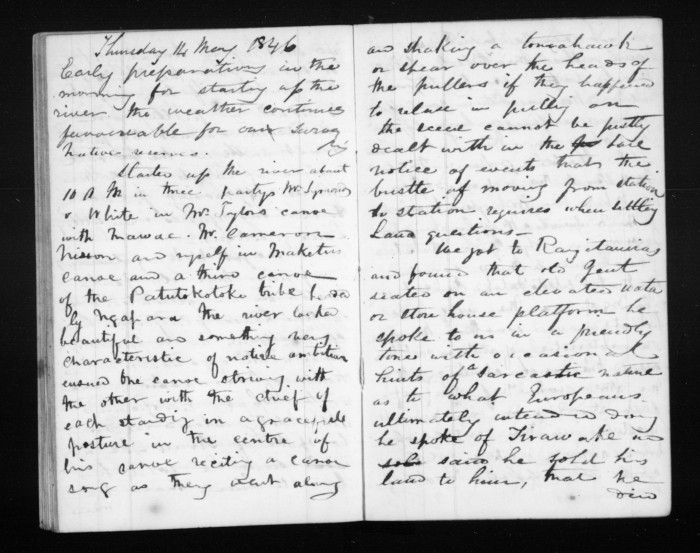 Thursday 14 May 1846
Early preparations in the
morning for starting up the
river the weather continues
favourable for our
Native
Started up the river about
10 A M in three partys Mr Symonds
& White in Mr Taylors canoe
with Mawae. Mr. Cameron
and myself in Maketus
canoe and a third canoe
of the Patutokotoko tribe headed
by Ngapara the river looked
beautiful and something very
characteristic of native ambition
ensued one canoe striving with
the other with the chief of
each standing in a graceful
posture in the centre of
his canoe reciting a canoe
song as they went along
and shaking a tomahawk
or spear over the heads of
the pullers if they happened
to relax in pulling on
the scene cannot be justly
dealt with in the
notice of events that the
bustle of moving from station
to station requires when settling
Land questions
We got to Rangitauira
and found that old Gent
seated on an elevated wata
or store house platform he
spoke to us in a friendly
tone with occasional
hints of a sarcastic nature
as to what Europeans
ultimately intended doing
he spoke of Tirawake
said he sold his
land to him, that he
did